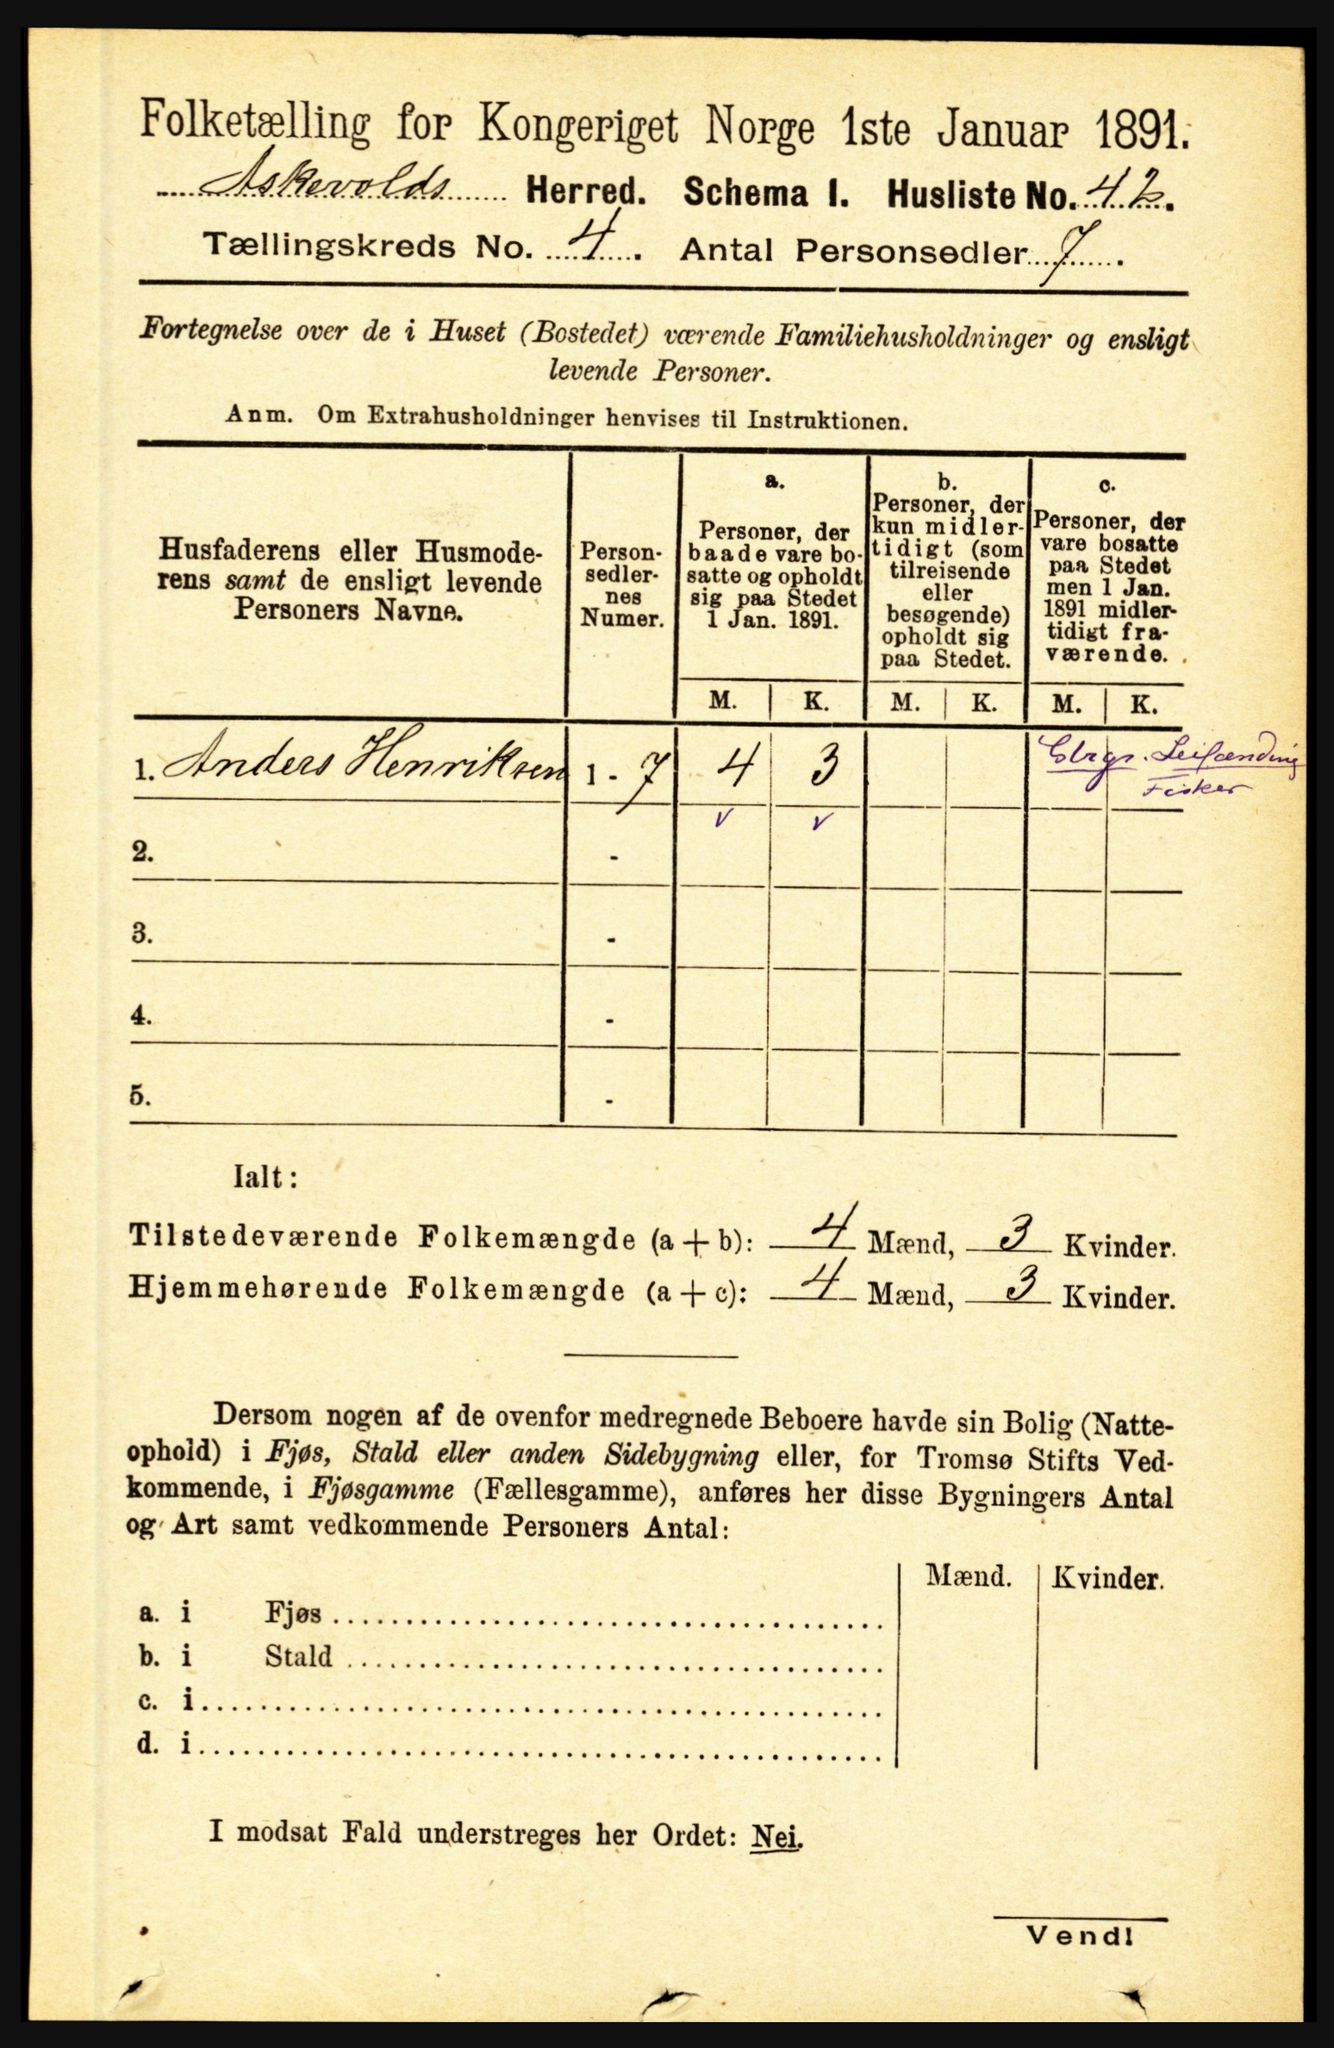 Folketælling for Kongeriget Norge 1ste Januar 1891.
Askevolds Herred. Schema I. Husliste No. 42.
Tællingskreds No. 4. Antal Personsedler 7.
Fortegnelse over de i Huset (Bostedet) værende Familiehusholdninger og ensligt
levende Personer.
Anm. Om Extrahusholdninger henvises til Instruktionen.
Husfaderens eller Husmode-
rens samt de ensligt levende
Personers Navne.
Person-
sedler-
nes
Numer.
a.
Personer, der
baade vare bo-
satte og opholdt
sig paa Stedet
1 Jan. 1891.
b.
Personer, der
kun midler-
tidigt (som
tilreisende
eller
besøgende)
opholdt sig
paa Stedet.
c.
Personer, der
vare bosatte
paa Stedet
men 1 Jan.
1891 midler-
tidigt fra-
værende.
M. K. M. K. M. K.
1. Anders Henriksen 1 - 7 4 3
Fisker
v v
2. -
3. -
4. -
5. -
Ialt:
Tilstedeværende Folkemængde (a + b): 4 Mænd, 3 Kvinder.
Hjemmehørende Folkemængde (a + c): 4 Mænd, 3 Kvinder.
Dersom nogen af de ovenfor medregnede Beboere havde sin Bolig (Natte-
ophold) i Fjøs, Stald eller anden Sidebygning eller, for Tromsø Stifts Ved-
kommende, i Fjøsgamme (Fællesgamme), anføres her disse Bygningers Antal
og Art samt vedkommende Personers Antal:
Mænd. Kvinder.
a. i Fjøs
b. i Stald
c. i
d. i
I modsat Fald understreges her Ordet: Nei.
Vend!